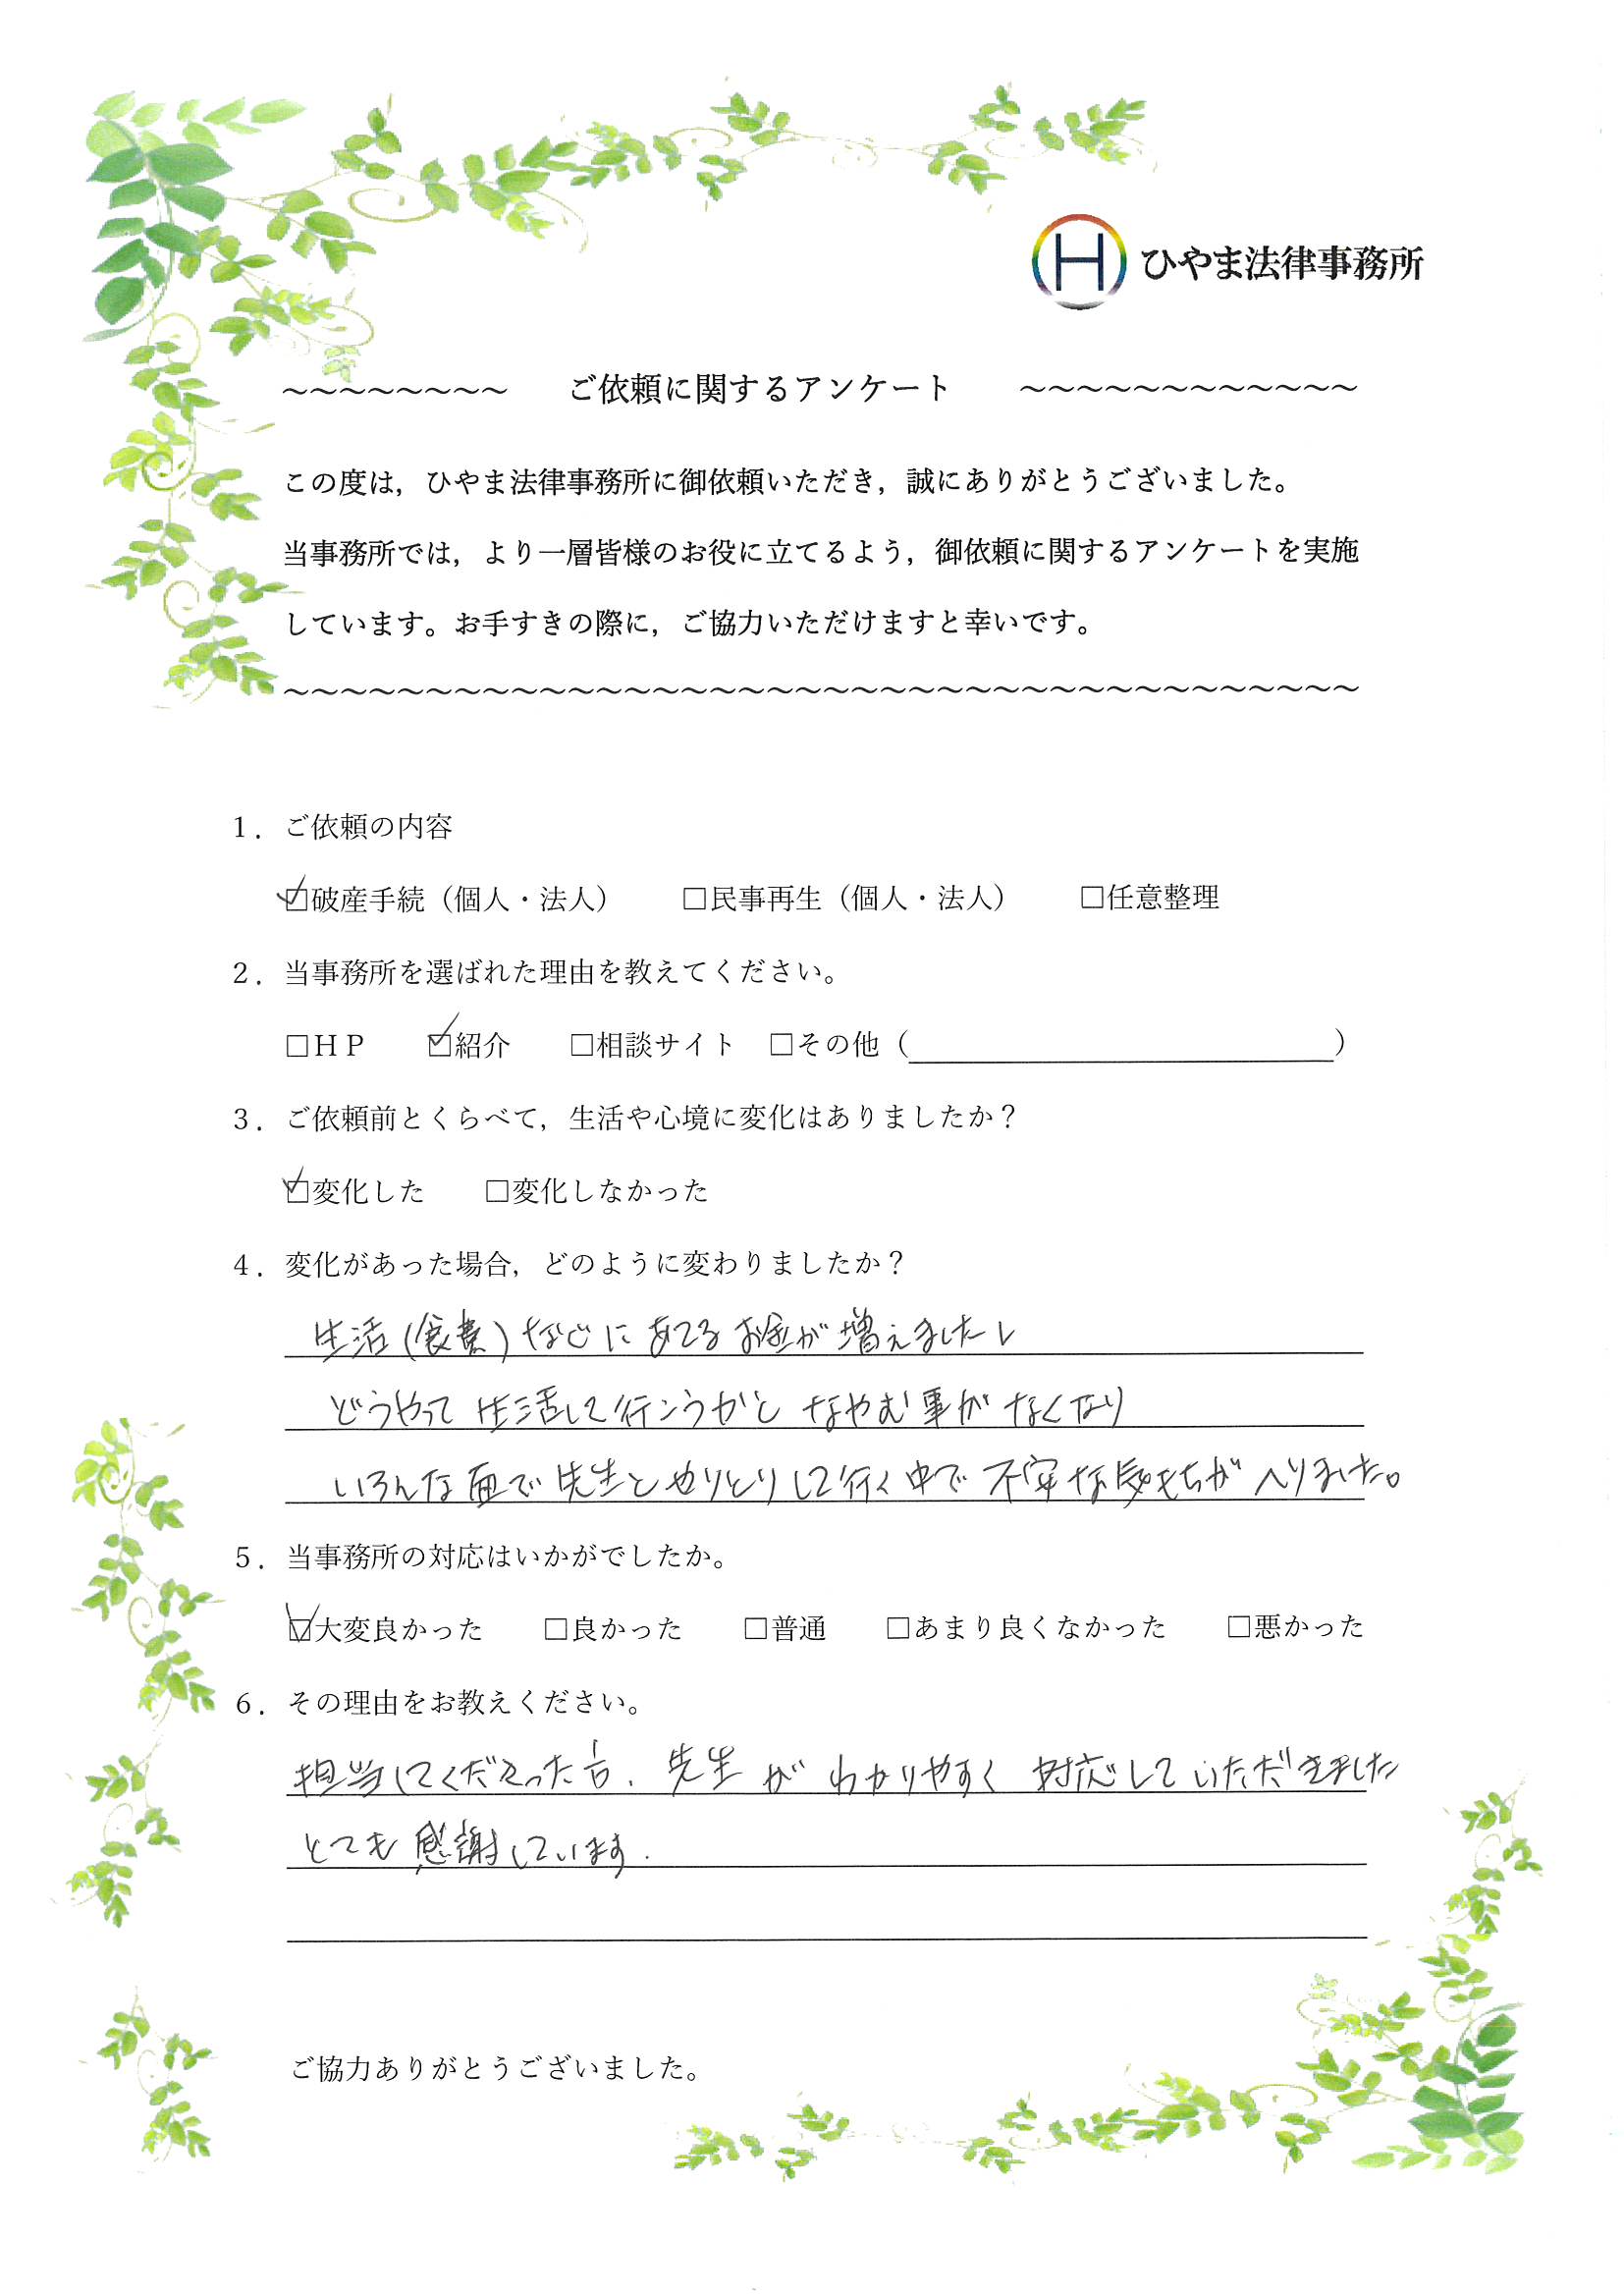 H ひやま法律事務所
~~~~~~~~ ご依頼に関するアンケート ~~~~~~~~~~~~
この度は，ひやま法律事務所に御依頼いただき，誠にありがとうございました。
当事務所では，より一層皆様のお役に立てるよう，御依頼に関するアンケートを実施
しています。お手すきの際に，ご協力いただけますと幸いです。
~~~~~~~~~~~~~~~~~~~~~~~~~~~~~~~~~~~~~~
１．ご依頼の内容
☑破産手続（個人・法人） □民事再生（個人・法人） □任意整理
２．当事務所を選ばれた理由を教えてください。
□ＨＰ ☑紹介 □相談サイト □その他（　　　　　）
３．ご依頼前とくらべて，生活や心境に変化はありましたか？
☑変化した □変化しなかった
４．変化があった場合，どのように変わりましたか？
生活(食費)などにあてるお金が増えましたし
どうやって生活して行こうかとなやむ事がなくなり
いろんな面で先生とやりとりして行く中で不安な気もちがへりました。
５．当事務所の対応はいかがでしたか。
☑大変良かった □良かった □普通 □あまり良くなかった □悪かった
６．その理由をお教えください。
担当してくださった方、先生がわかりやすく対応していただきました
とても感謝しています.
ご協力ありがとうございました。